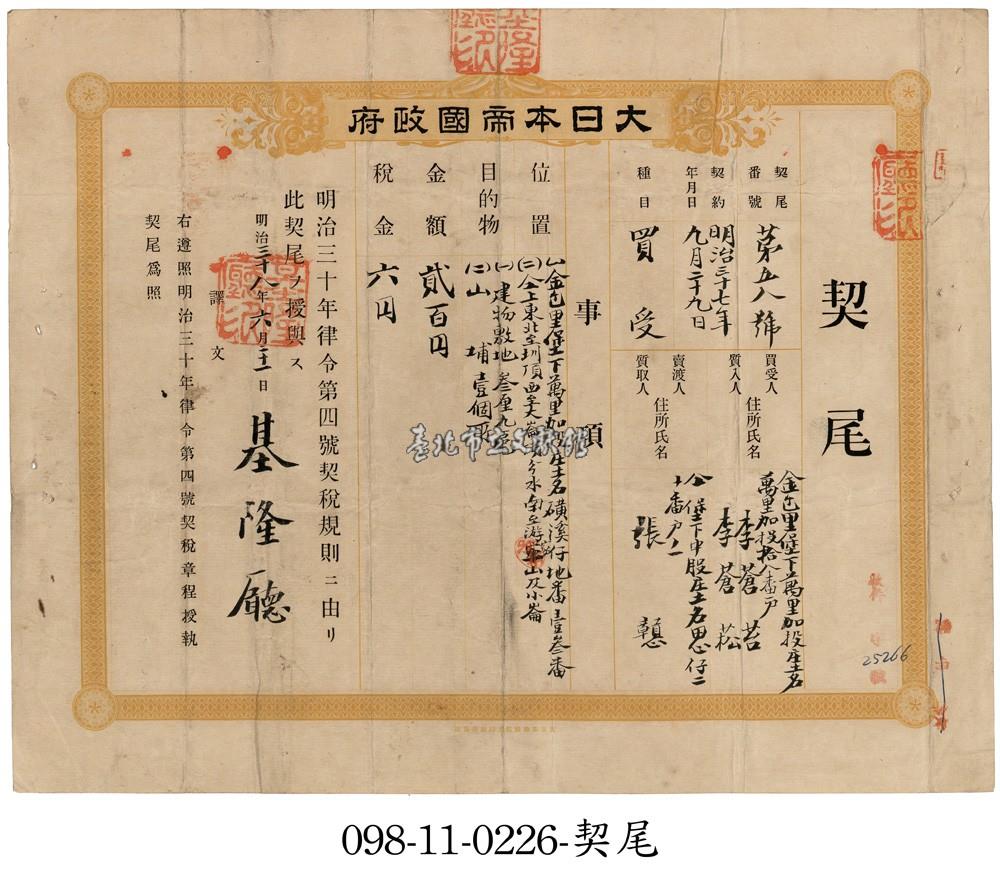 大日本帝國政府
契尾
契尾番號
第五八號
契約年月日
明治三十七年
九月二十九日
種目
買受
買受人
質入人
住所氏名
金包里堡下萬里加投庄土名
萬里加投拾八番戶
李蒼苔
李蒼菘
賣渡人
質取人
住所氏名
仝堡下中股庄土名思仔二
十番戶ノ一
張
事項
位置
金包里堡下萬里加投庄土名磺溪仔地番壹叁番
(二)仝上東北至圳頂西至大崙
分水南至游
山及小崙
目的物
(一)建物敷地叁厘九
(二)山埔壹個所
金額
貳百円
稅金
六円
明治三十年律令第四號契稅規則ニ由リ
此契尾ヲ授與ス
明治三十八年六月二十一日
基隆廳
譯文
右遵照明治三十年律令第四號契稅章程授執
契尾爲照
25266
臺北市立文獻館
098-11-0226-契尾